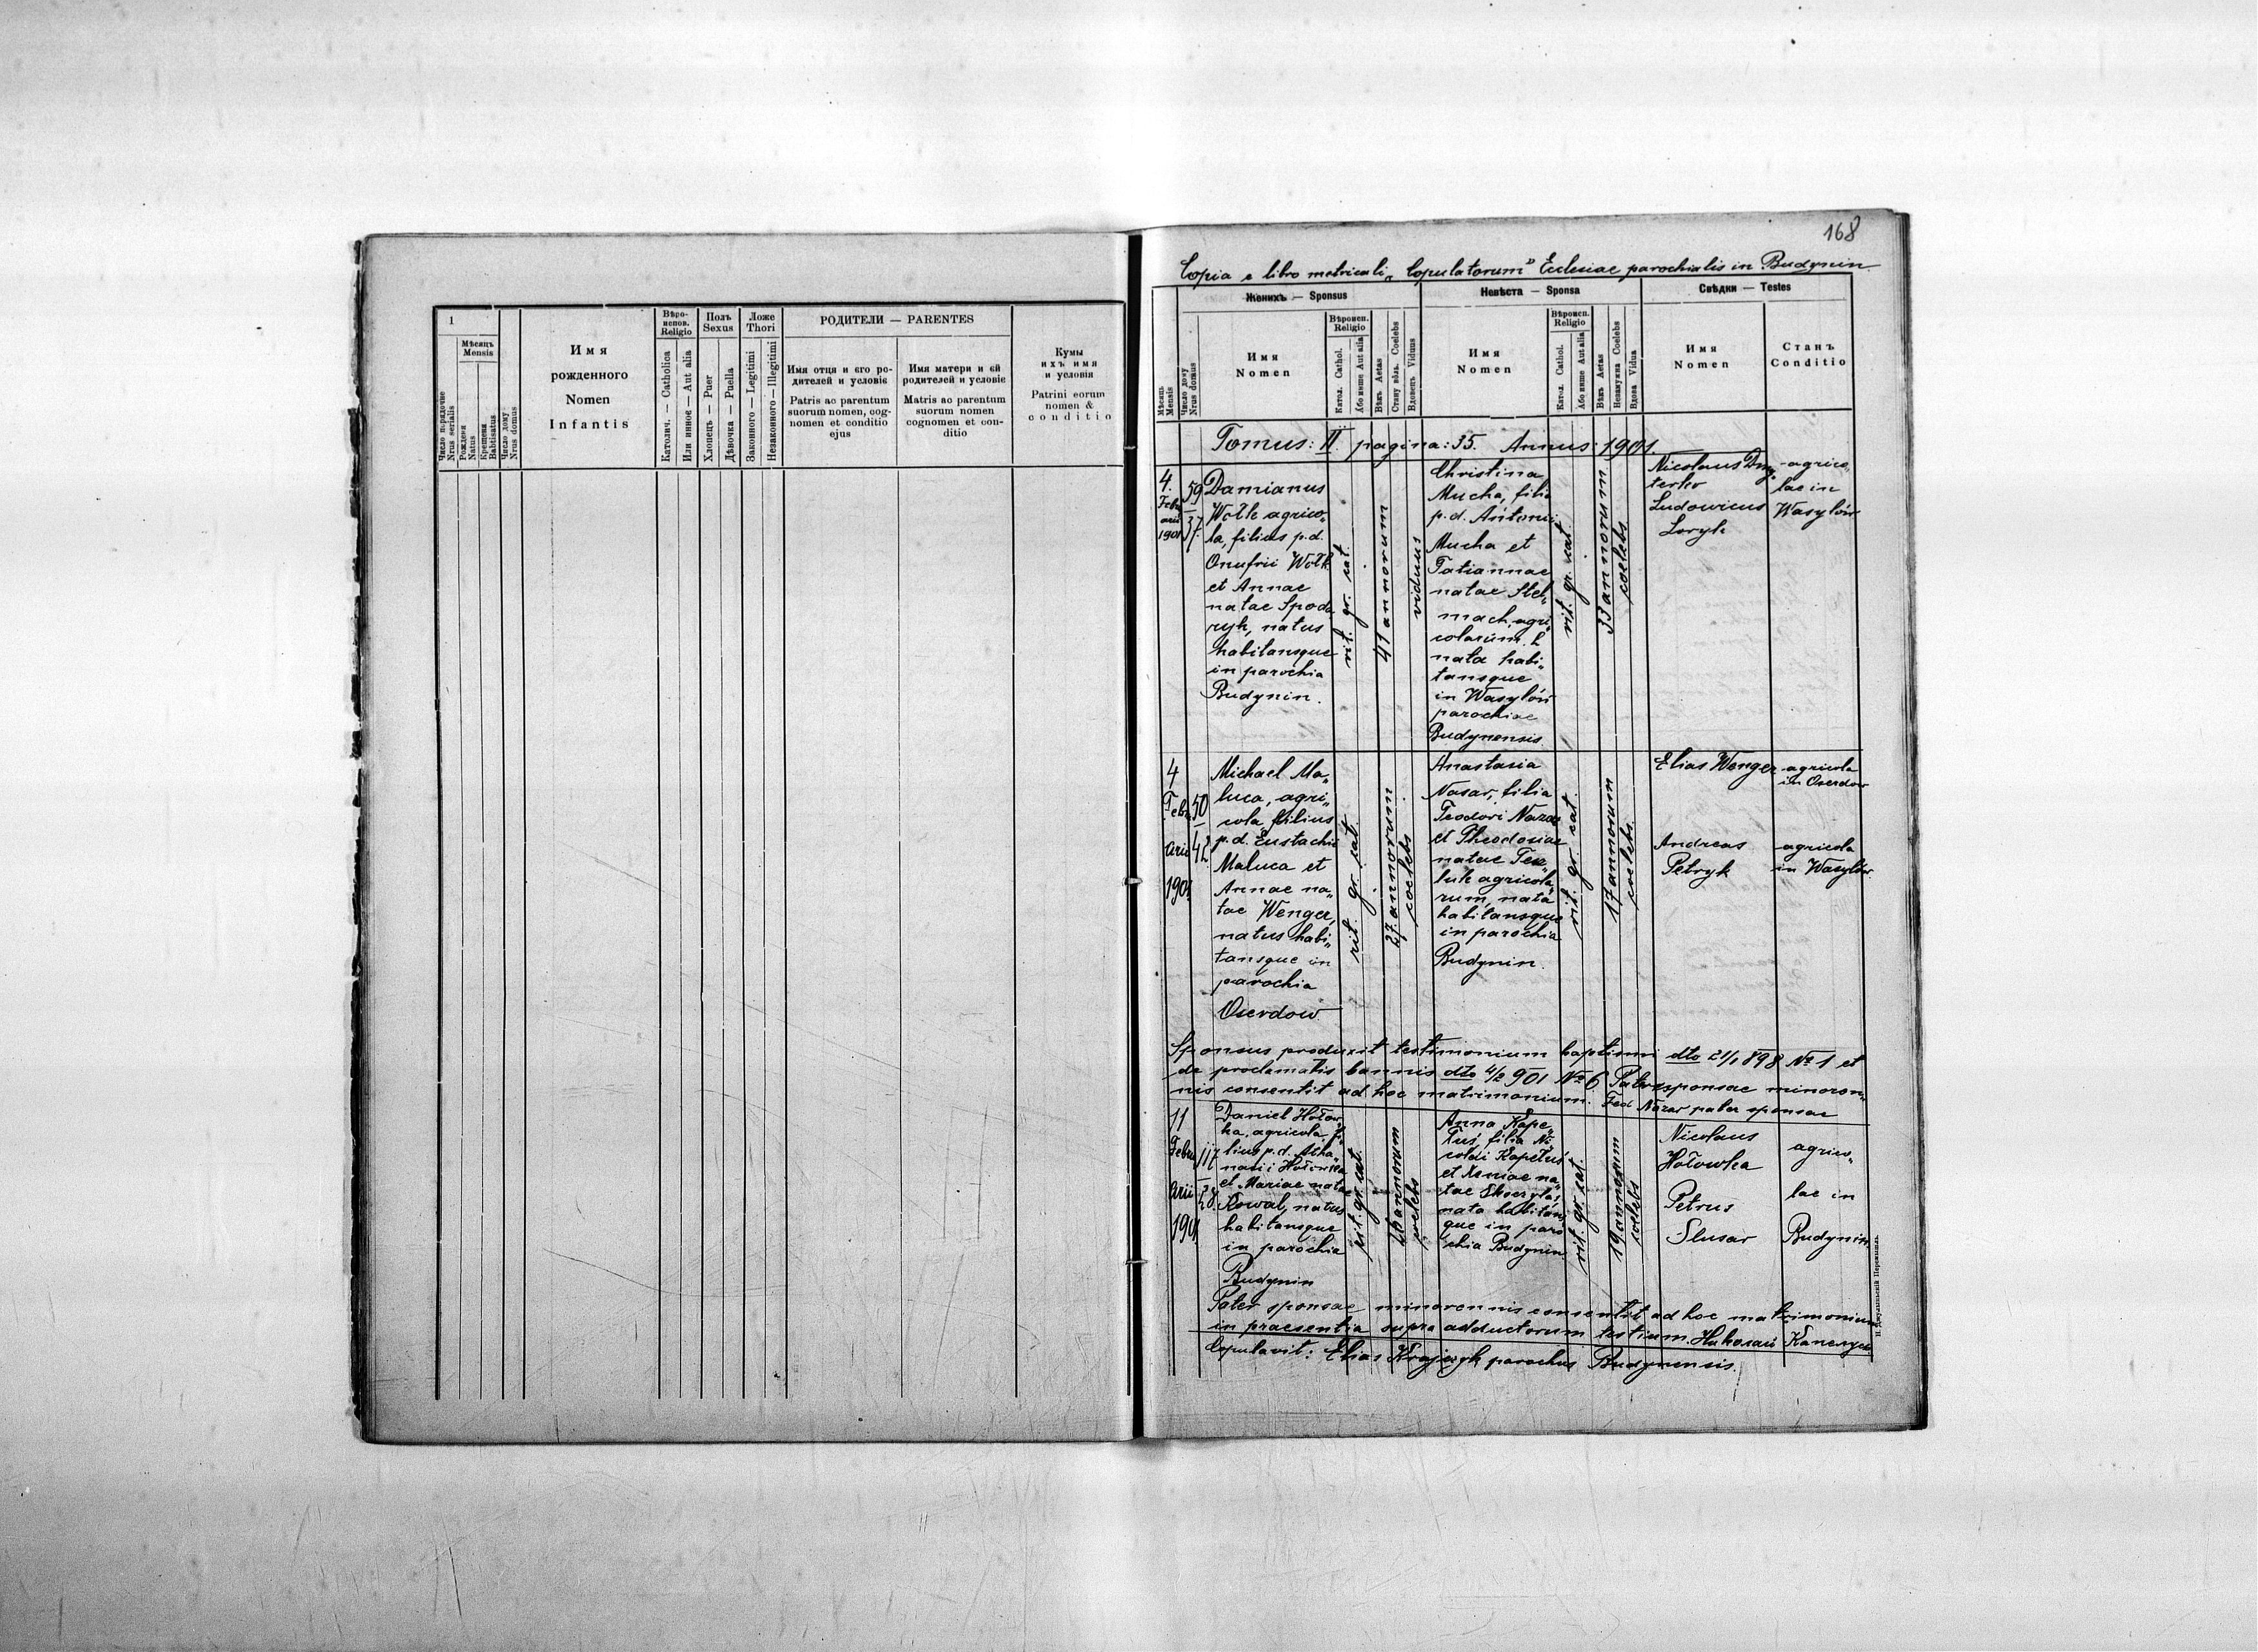 1
Число порядочне
Nrus serialis
Мѣсяць
Mensis
Рожденя
Natus
Крещеня
Babtisatus
Число дому
Nrus domus
Имя
рожденного
Nomen
Infantis
Вѣро-
испов.
Religio
Католич. — Catholica
Или инноє — Aut alia
Полъ
Sexus
Хлопець — Puer
Дѣвочка — Puella
Ложе
Thori
Законного — Legitimi
Незаконного — Illegitimi
РОДИТЕЛИ — PARENTES
Имя отця и єго ро-
дителей и условіє
Patris ac parentum
suorum nomen, cog-
nomen et conditio
ejus
Имя матери и єй
родителей и условіє
Matris ac parentum
suorum nomen
cognomen et con-
ditio
Кумы
ихъ имя
и условія
Patrini eorum
nomen &
conditio
168
Copia e libro metricali „Copulatorum" Ecclesiae parochialis in Budynin.
Мѣсяць
Mensis
Число дому
Nrus domus
Женихъ — Sponsus
Имя
Nomen
Вѣроисп.
Religio
Катол. Cathol.
Або инше Aut alia
Вѣкъ Aetas
Стану вѣль. Coelebs
Вдовець Viduus
Невѣста — Sponsa
Имя
Nomen
Вѣроисп.
Religio
Катол. Cathol.
Або инше Aut alia
Вѣкъ Aetas
Незамужна Coelebs
Вдова Vidua
Свѣдки — Testes
Имя
Nomen
Станъ
Conditio
Tomus: II. pagina: 35. Annus: 1901.
4.
Febru
arii
1901
59
37.
Damianus
Wołk agrico„
la, filius p.d.
Onufrii Wołk
et Annae
natae Spoda
ryk, natus
habitansque
in parochia
Budynin.
rit. gr. cat.
41 annorum
viduus
Christina
Mucha, filia
p.d. Antonii
Mucha et
Tatiannae
natae Stel„
mach, agri„
colarum.
nata habi„
tansque
in Wasylów
parochiae
Budynensis.
rit. gr. cat.
33 annorum
coelebs
Nicolaus
terko
Ludowicus
Loryk
agrico„
lae in
Wasylów
4
Febru
arii
1901
50
42
Michael Ma„
luca, agri„
cola, filius
p.d. Eustachii
Maluca et
Annae na„
tae Wenger,
natus habi„
tansque in
parochia
Oserdow
rit. gr. cat.
27 annorum
coelebs
Anastasia
Nasar, filia
Teodori Nazar
et Theodosiae
natae
luk agricola„
rum, nata
habitansque
in parochia
Budynin.
rit. gr. cat.
17 annorum
coelebs.
Elias Wenger
agricola
in Oserdow
Andreas
Petryk
agricola
in Wasylów.
Sponsus produxit testimonium baptismi dto 21/1 898 № 1 et
de proclamatis bannis dto 4/2 901 № 6 Pater sponsae minoren„
nis consentit ad hoc matrimonium. Fed Nazar pater sponsae
11
Febru
arii
1901
117
28.
Daniel Hołow„
ka, agricola, fi„
lius p.d. Atha„
nasii Hołowka
et Mariae nata
Kowal, natus
habitansque
in parochia
Budynin
rit. gr. cat.
26 annorum
coelebs
Anna Kape„
luś, filia Ni„
colai Kapeluś
et Xeniae na„
tae Skoczylas,
nata habitans
que in paro
chia Budynin
rit. gr. cat.
19 annorum
coelebs
Nicolaus
Hołowka
Petrus
Slusar
agrico„
lae in
Budynin.
Pater sponsae minorennis consentit ad hoc matrimonium
in praesentia supra adductorum testium. Николай Капелус
Copulavit: Elias Krajczyk parochus Budynensis.